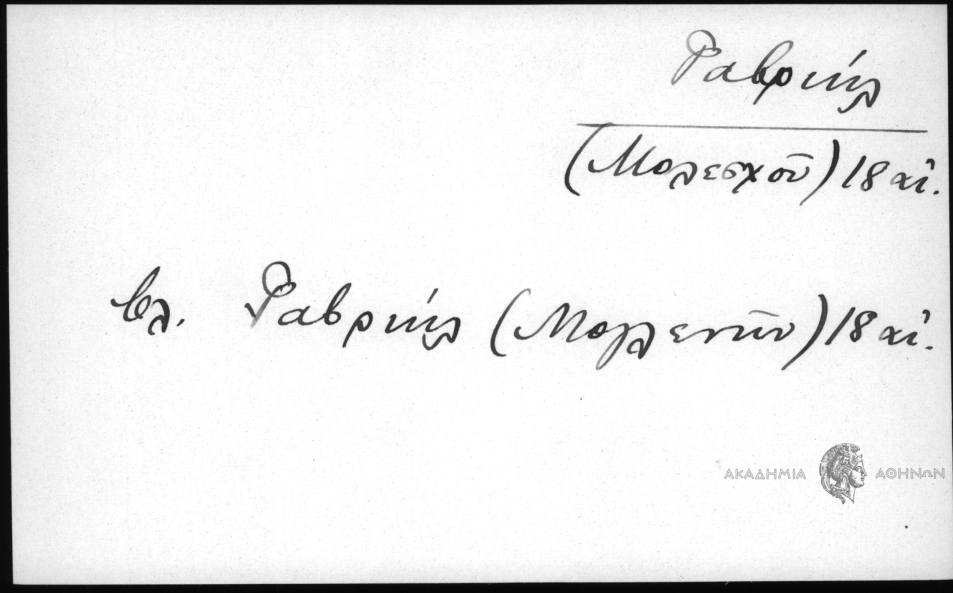 Γαβριήλ
(Μολεσχοῦ) 18 αἰ.
βλ. Γαβριήλ (Μογλενῶν) 18 αἰ.
ΑΚΑΔΗΜΙΑ ΑΘΗΝΩΝ